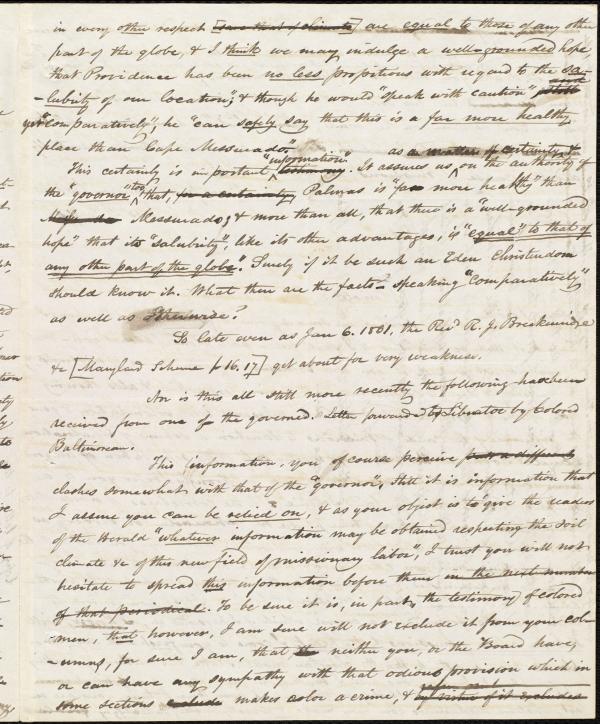 in every other respect [save that of climate] are equal to those of any other
part of the globe, & I think we may indulge a well-grounded hope
that Providence has been no less propitious with regard to the sa-
-lubrity of our location", & though he would "speak with caution"
yet "comparatively", he "can safely say that this is a far more healthy
place than Cape Messurado".
"information" as a matter of certainty &
This certainly is important testimony. It assures us, on the authority of
the "governor" too that, for a certainty Palmas is "far more healthy" than
Messurado; & more than all, that there is a "well-grounded
hope" that its "salubrity", like its other advantages, is "equal" to that of
any other part of the globe". Surely if it be such an Eden Christendom
should know it. What then are the facts - speaking "comparatively"
as well as otherwise?
So late even as Jan 6. 1801, the Revd R. J. Breckinridge
&c [Maryland Scheme p 16. 17] get about for very weakness.
Nor is this all still more recently the following has been
received from one of the governed. Letter forwarded to Liberator by Colored
Baltimorean.
This information, you of course perceive
clashes somewhat with that of the "governor", still it is information that
I assure you can be relied on, & as your object is to "give the readers
of the Herald "whatever information may be obtained respecting the soil
climate &c of this new field of missionary labor", I trust you will not
hesitate to spread this information before them in the next number
of that periodical. To be sure it is, in part, the testimony of colored
men, that however, I am sure will not exclude it from your col-
-umns, for sure I am, that neither you, or the Board have,
or can have any sympathy with that odious provision which in
some sections exclude makes color a crime, & in virtue of it excludes